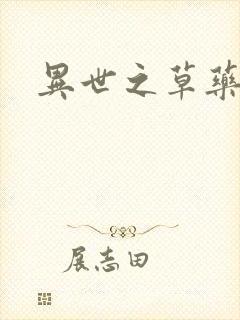 異世之草藥
展志田